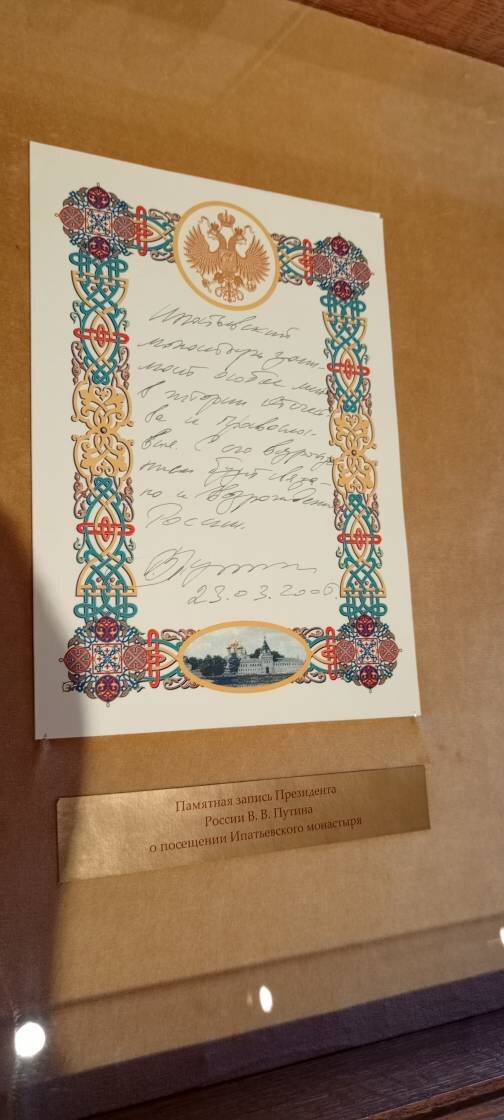 Ипатьевский
монастырь зани-
мает особое место
в истории Отечест-
ва и Правосла-
вия. С его возрожде-
нием будет связа-
но и возрождение
России.
В Путин
23.03.2005.
Памятная запись Президента
России В. В. Путина
о посещении Ипатьевского монастыря